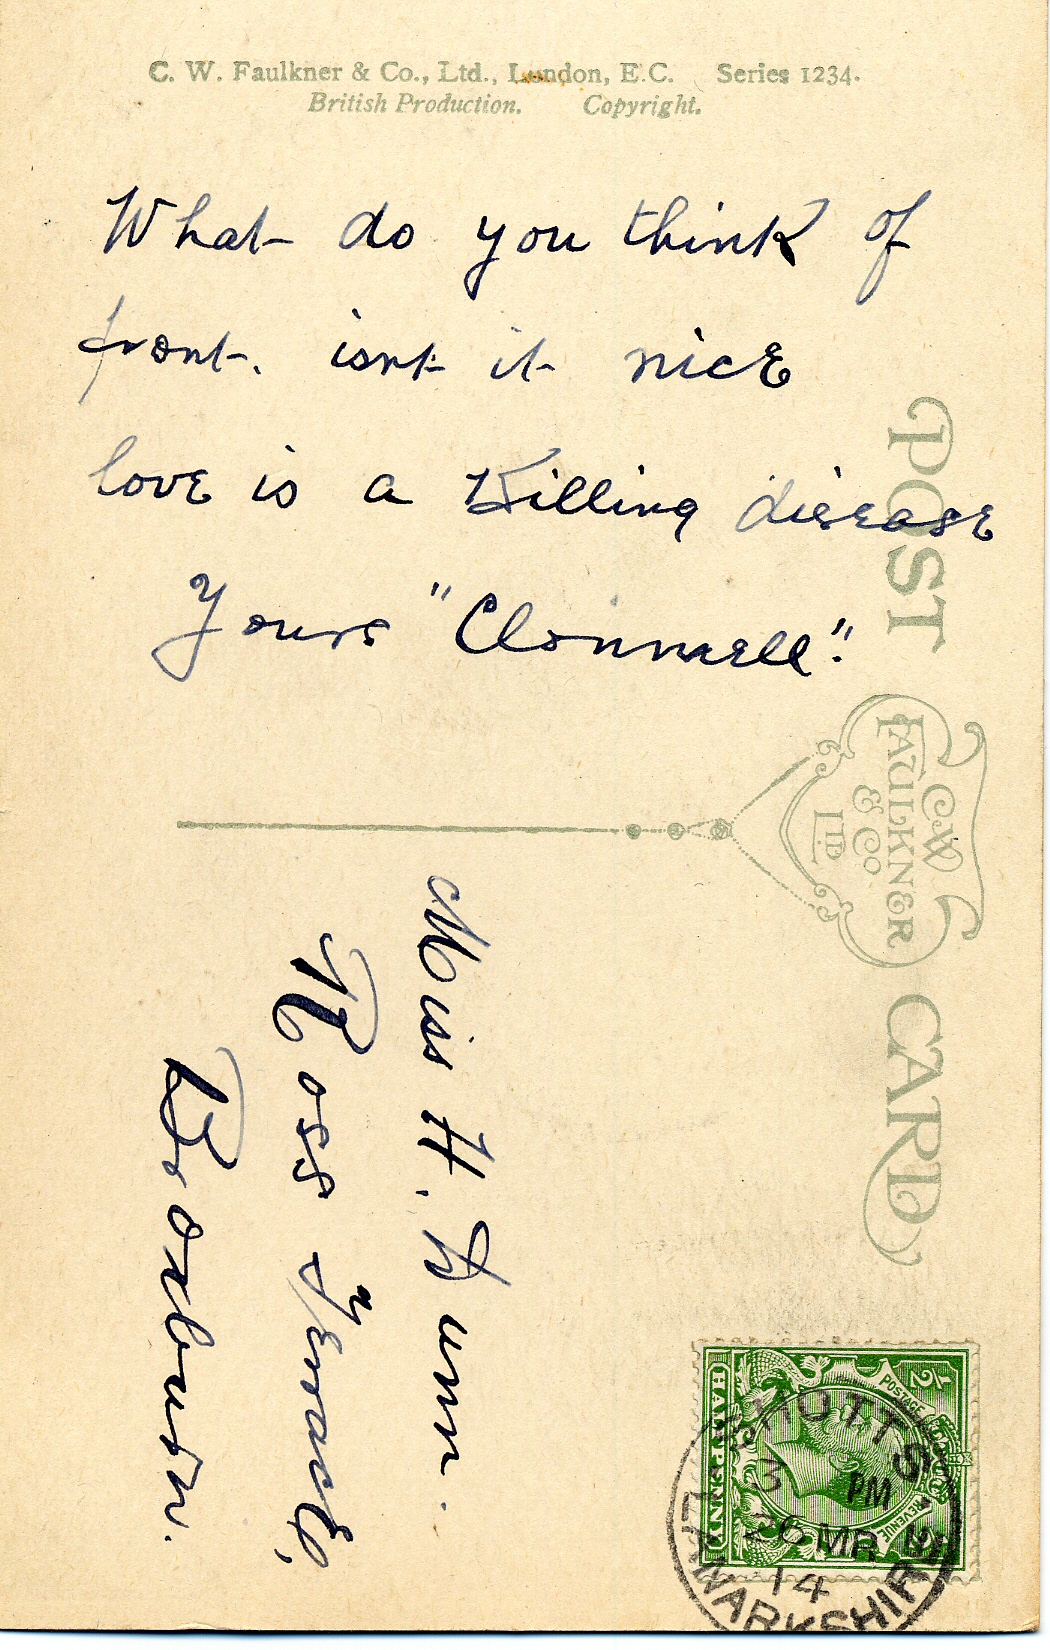 C. W. Faulkner & Co., Ltd., London, E.C. Series 1234.
British Production. Copyright.
What do you think of
front. isnt it nice
love is a Killing disease
Yours "Clonmell".
POST CARD
C W
FAULKNER
& Co
LTD
Miss H.
Ross Terrace,
Broxburn.
POSTAGE
REVENUE
1/2
HALFPENNY
SHOTTS
3 PM
26 MR
14
LANARKSHIRE